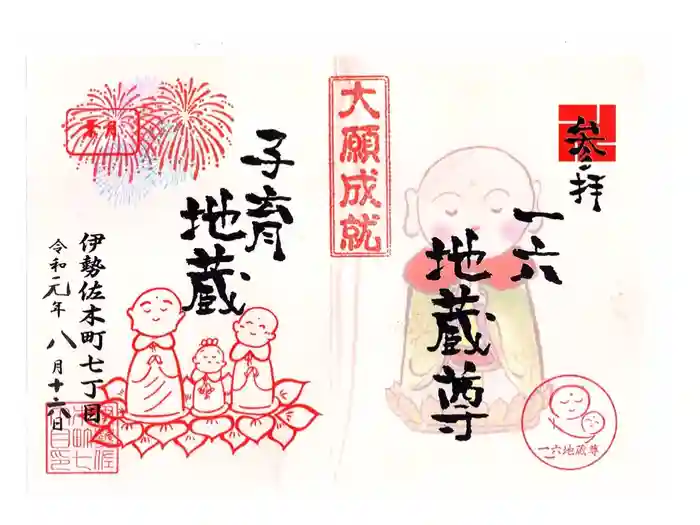 参拝
一六
地蔵尊
一六地蔵尊
大願成就
子育
地蔵
葉月
伊勢佐木町七丁目
令和元年八月十六日